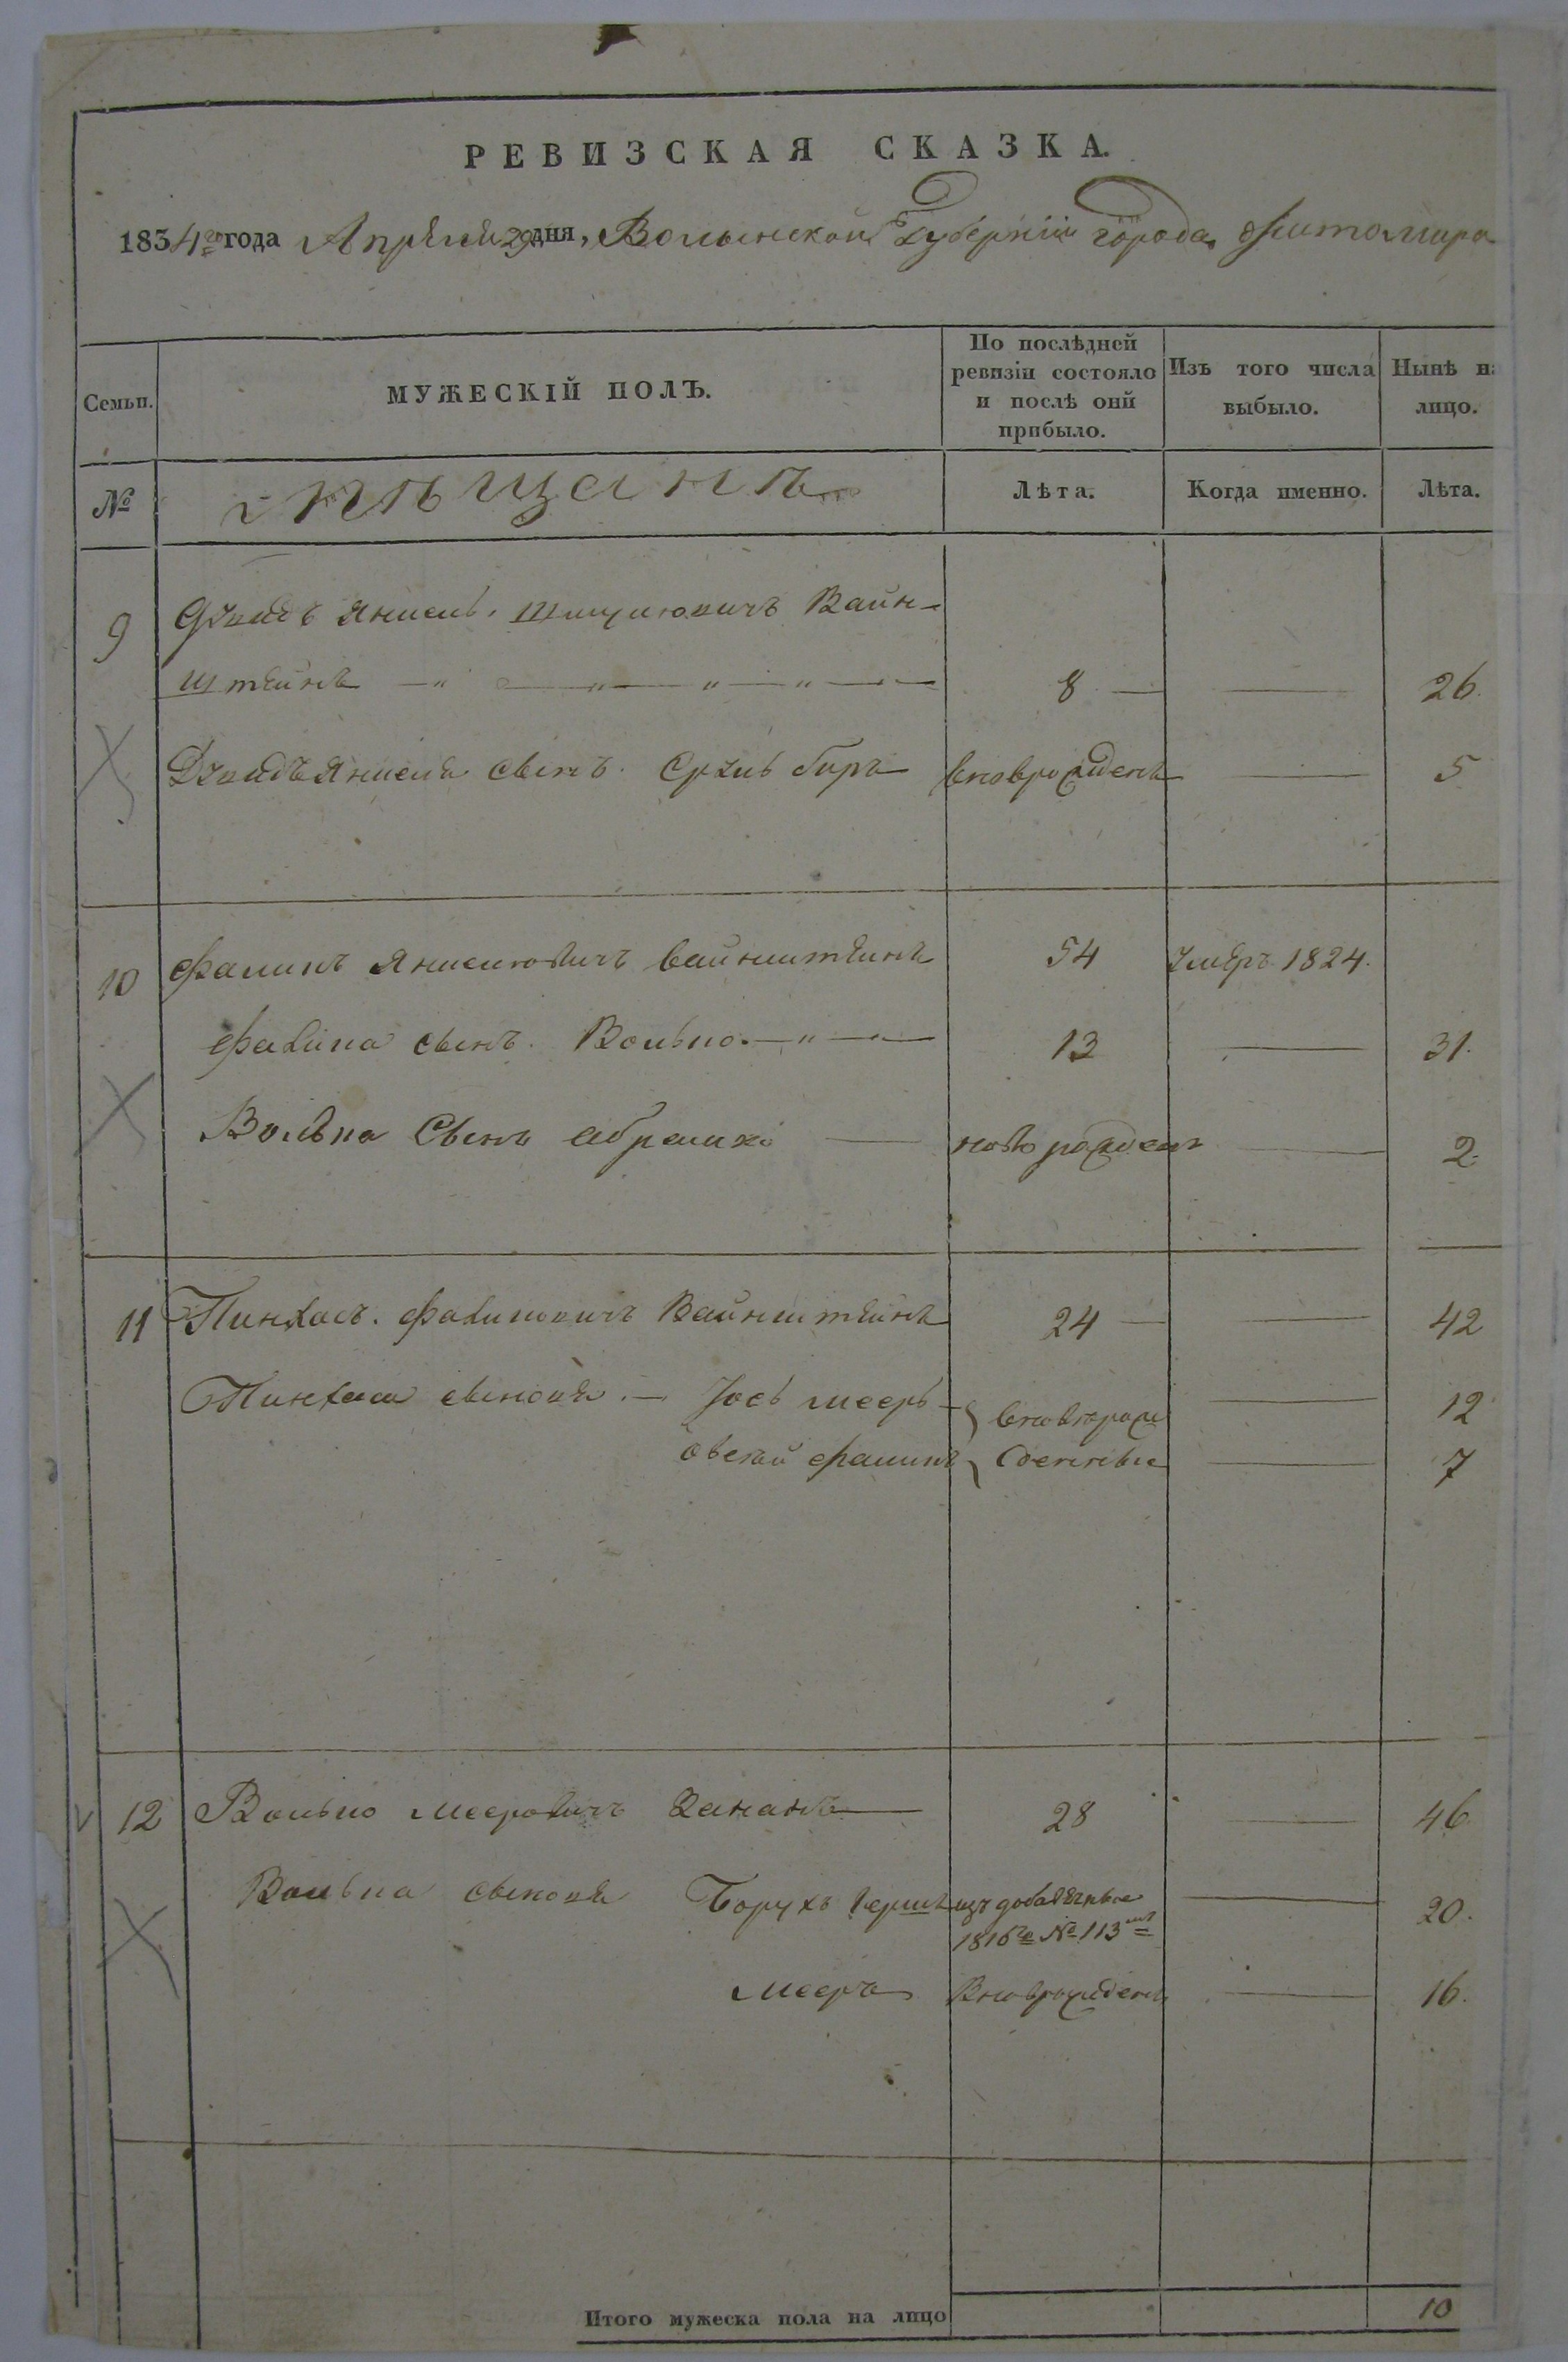 РЕВИЗСКАЯ СКАЗКА.
1834го года Апреля 29 дня, Волынской Губернии города Житомира
Семьи.
МУЖЕСКІЙ ПОЛЪ.
По послѣдней ревизіи состояло и послѣ оній прибыло.
Изъ того числа выбыло.
Нынѣ на лицо.
№
Мѣщанъ
Лѣта.
Когда именно.
Лѣта.
9 Янкель Вайн-
штейнъ 8 26.
сынъ Сруль Беръ вновьрожденъ 5
10 Файвишъ Янкелювичъ Вайнштейнъ 54 умеръ 1824.
сынъ Волько 13 31.
Волька Сынъ Абрамко новорожденъ 2.
11 Пинхасъ Вайнштейнъ 24 42
Пинхаса сыновя Іось Мееръ вноврож 12
Овсей денные 7
12 Волько Мееровичъ 28 46.
Волька сыновя Борухъ Гершъ изъ добавочныхъ 20.
1816го № 113
Мееръ Вноврожденъ 16.
Итого мужеска пола на лицо 10